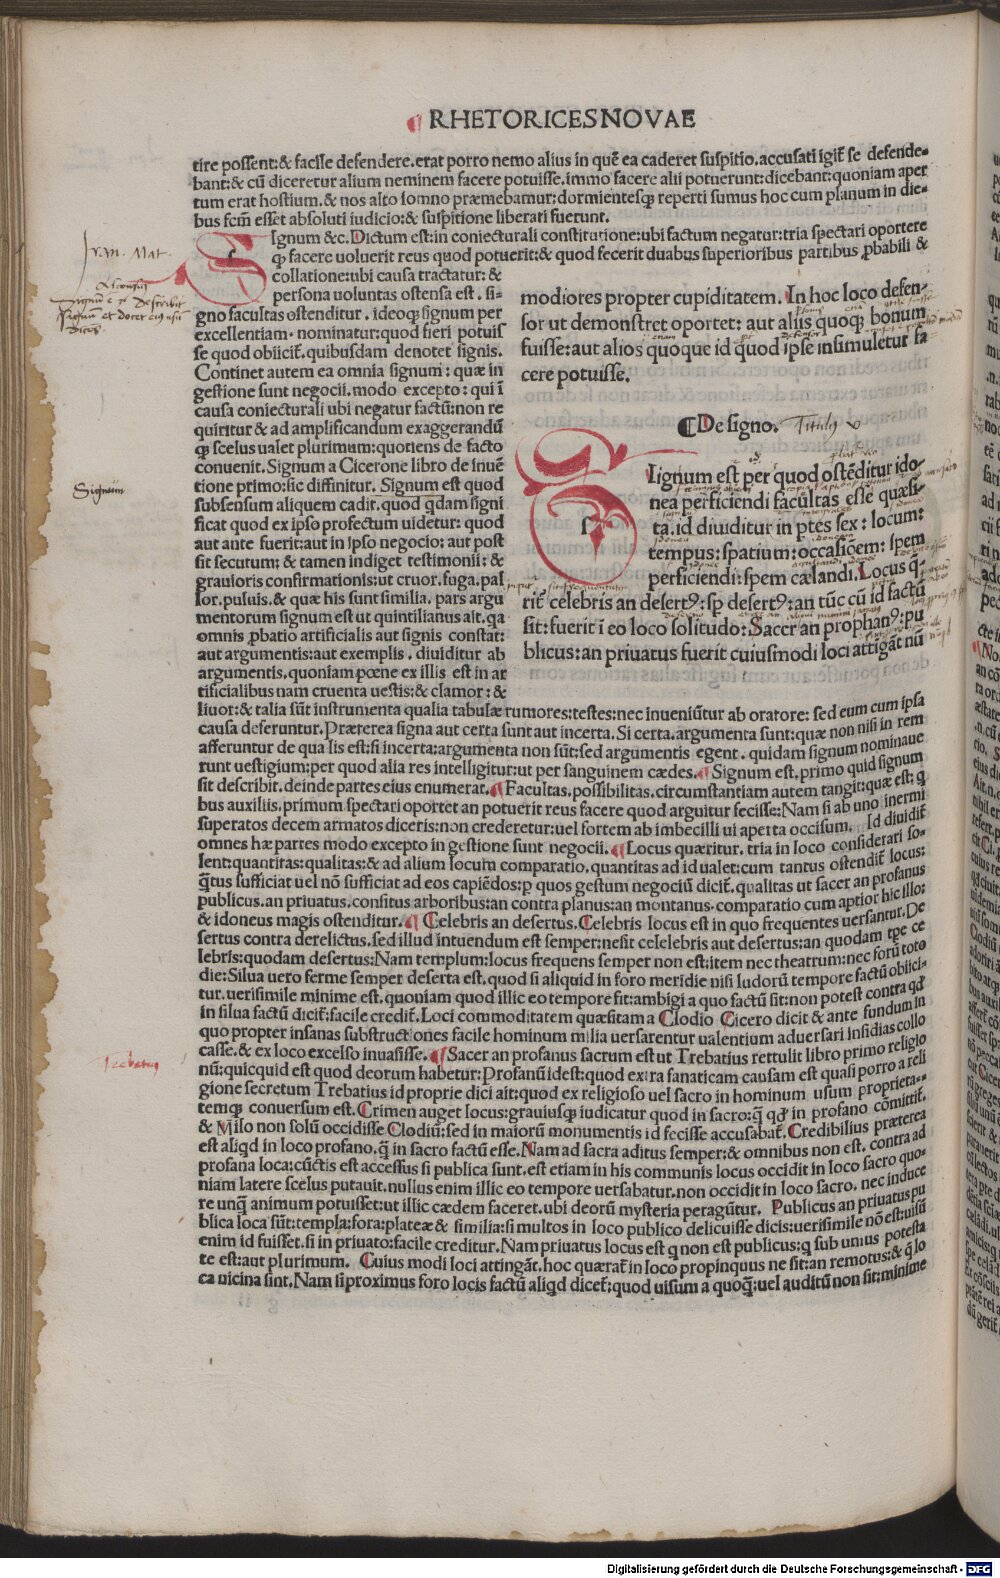 RHETORICES NOVAE
tire possent:& facile defendere.erat porro nemo alius in quē ea caderet suspitio.accusati igit̄ se defende-
bant:& cū diceretur alium neminem facere potuisse.immo facere alii potuerunt:dicebant:quoniam aper
tum erat hostium.& nos alto somno præmebamur:dormientesq; reperti sumus hoc cum planum in die-
bus fcm̄ esset absoluti iudicio:& suspitione liberati fuerunt.
SIgnum &c.Dictum est:in coniecturali constitutione:ubi factum negatur:tria spectari oportere
q; facere uoluerit reus quod potuerit:& quod fecerit duabus superioribus partibus ꝓbabili &
collatione:ubi causa tractatur: &
persona uoluntas ostensa est . si-
gno facultas ostenditur . ideoq; signum per
excellentiam . nominatur:quod fieri potuis
se quod obiicit̄.quibusdam denotet signis.
Continet autem ea omnia signum : quæ in
gestione sunt negocii.modo excepto : qui ī
causa coniecturali ubi negatur factū:non re
quiritur & ad amplificandum exaggerandū
q; scelus ualet plurimum:quotiens de facto
conuenit. Signum a Cicerone libro de inuē
tione primo:sic diffinitur. Signum est quod
subsensum aliquem cadit.quod q̄dam signi
ficat quod ex ipso profectum uidetur: quod
aut ante fuerit:aut in ipso negocio: aut post
sit secutum: & tamen indiget testimonii: &
grauioris confirmationis:ut cruor.fuga.pal
lor.puluis.& quæ his sunt similia. pars argu
mentorum signum est ut quintilianus ait.qa
omnis ꝓbatio artificialis aut signis constat:
aut argumentis:aut exemplis . diuiditur ab
argumentis.quoniam pœne ex illis est in ar
tificialibus nam cruenta uestis:& clamor : &
modiores propter cupiditatem. In hoc loco defen-
sor ut demonstret oportet: aut aliis quoq; bonum
fuisse:aut alios quoque id quod ipse insimuletur fa
cere potuisse.
De signo. Titulus V
SIignum est per quod ostēditur ido-
nea perficiendi facultas esse quæsi-
ta.id diuiditur in ptes sex : locum:
tempus: spatium: occasiōem: spem
perficiendi: spem cælandi. Locus q̄-
rit̄ celebris an desertꝰ: sp̄ desertꝰ: an tūc cū id factū
sit: fuerit ī eo loco solitudo: Sacer an prophanꝰ: pu
blicus: an priuatus fuerit cuiusmodi loci attigāt nū
liuor: & talia sūt instrumenta qualia tabulæ rumores:testes:nec inueniūtur ab oratore: sed eum cum ipsa
causa deferuntur.Præterea signa aut certa sunt aut incerta. Si certa.argumenta sunt:quæ non nisi in rem
afferuntur de qua lis est:si incerta:argumenta non sūt:sed argumentis egent . quidam signum nominaue
runt uestigium:per quod alia res intelligitur:ut per sanguinem cædes. Signum est.primo quid signum
sit describit.deinde partes eius enumerat. Facultas.possibilitas.circumstantiam autem tangit:quæ est: q̄
bus auxiliis.primum spectari oportet an potuerit reus facere quod arguitur fecisse:Nam si ab uno inermi
superatos decem armatos diceris:non crederetur:uel fortem ab imbecilli ui aperta occisum. Id diuidit̄
omnes hæ partes modo excepto in gestione sunt negocii. Locus quæritur. tria in loco considerari so-
lent:quantitas:qualitas:& ad alium locum comparatio.quantitas ad id ualet:cum tantus ostendit̄ locus:
q̄tus sufficiat uel nō sufficiat ad eos capiēdos:p quos gestum negociū dicit̄.qualitas ut sacer an profanus
publicus.an priuatus.consitus arboribus:an contra planus:an montanus.comparatio cum aptior hic illo:
& idoneus magis ostenditur. Celebris an desertus.Celebris locus est in quo frequentes uersantur.De
sertus contra derelictus.sed illud intuendum est semper:nesit celelebris aut desertus:an quodam tp̄e ce
lebris:quodam desertus:Nam templum:locus frequens semper non est:item nec theatrum:nec forū toto
die:Silua uero ferme semper deserta est.quod si aliquid in foro meridie nisi ludorū tempore factū obiici-
tur.uerisimile minime est.quoniam quod illic eo tempore sit:ambigi a quo factū sit:non potest contra qd̄
in silua factū dicit̄:facile credit̄. Loci commoditatem quæsitam a Clodio Cicero dicit & ante fundum in
quo propter insanas substructiones facile hominum milia uersarentur ualentium aduersari insidias collo
casse.& ex loco excelso inuasisse. Sacer an profanus sacrum est ut Trebatius rettulit libro primo religio
nū:quicquid est quod deorum habetur:Profanū idest:quod extra fanaticam causam est quasi porro a reli
gione secretum Trebatius id proprie dici ait:quod ex religioso uel sacro in hominum usum proprieta--
temq; conuersum est. Crimen auget locus:grauiusq; iudicatur quod in sacro:q̄ qd̄ in profano cōmittit̄.
& Milo non solū occidisse Clodiū:sed in maiorū monumentis id fecisse accusabat̄. Credibilius præterea
est aliqd in loco profano.q̄ in sacro factū esse. Nam ad sacra aditus semper:& omnibus non est. contra ad
profana loca:cūctis est accessus si publica sunt.est etiam in his communis locus occidit in loco sacro quo-
niam latere scelus putauit.nullus enim illic eo tempore uersabatur.non occidit in loco sacro. nec induce
re unq̄ animum potuisset:ut illic cædem faceret.ubi deorū mysteria peragūtur. Publicus an priuatus pu
blica loca sūt:templa:fora:plateæ & similia:si multos in loco publico delicuisse dicis:uerisimile nō est:uisū
enim id fuisset.si in priuato:facile creditur. Nam priuatus locus est q non est publicus:q sub unius potesta
te est:aut plurimum. Cuius modi loci attingāt.hoc quærat̄ in loco propinquus ne sit:an remotus:& q̄ lo
ca uicina sint. Nam si proximus foro locis factū aliqd dicet̄:quod uisum a quoq̄:uel auditū non sit:minime
Signum
Trebatius
Digitalisierung gefördert durch die Deutsche Forschungsgemeinschaft - DFG